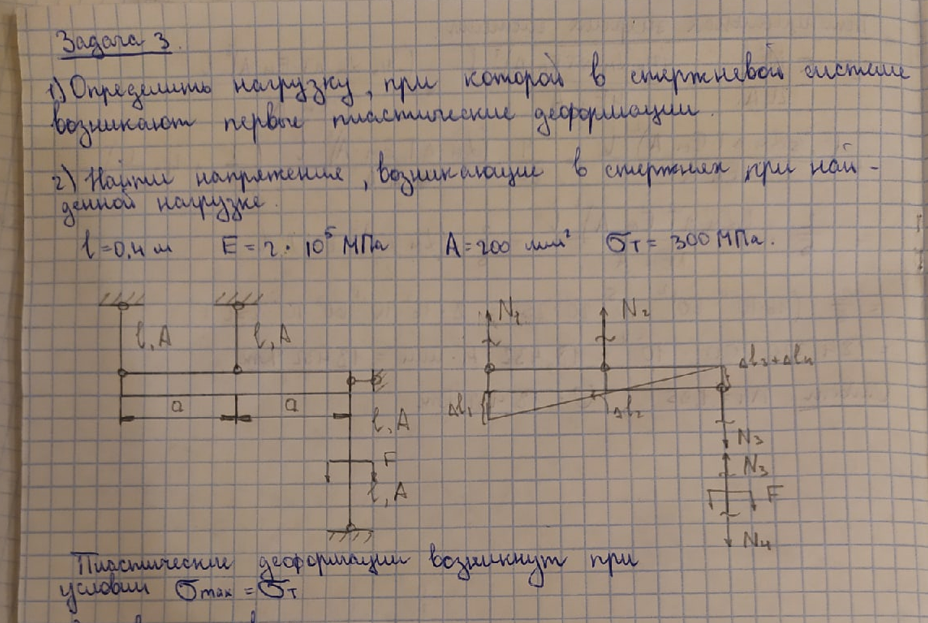 Задача 3.
1) Определить нагрузку, при которой в стержневой системе
возникают первые пластические деформации.
2) Найти напряжения, возникающие в стержнях при най-
денной нагрузке.
l = 0,4 м E = 2 · 10⁵ МПа A = 200 мм² σт = 300 МПа.
l, A l, A
a a
l, A
F
l, A
N₁ N₂
Δl₃+Δl₄
Δl₁ Δl₂
N₃
N₃
F
N₄
Пластические деформации возникнут при
условии σmax = σт